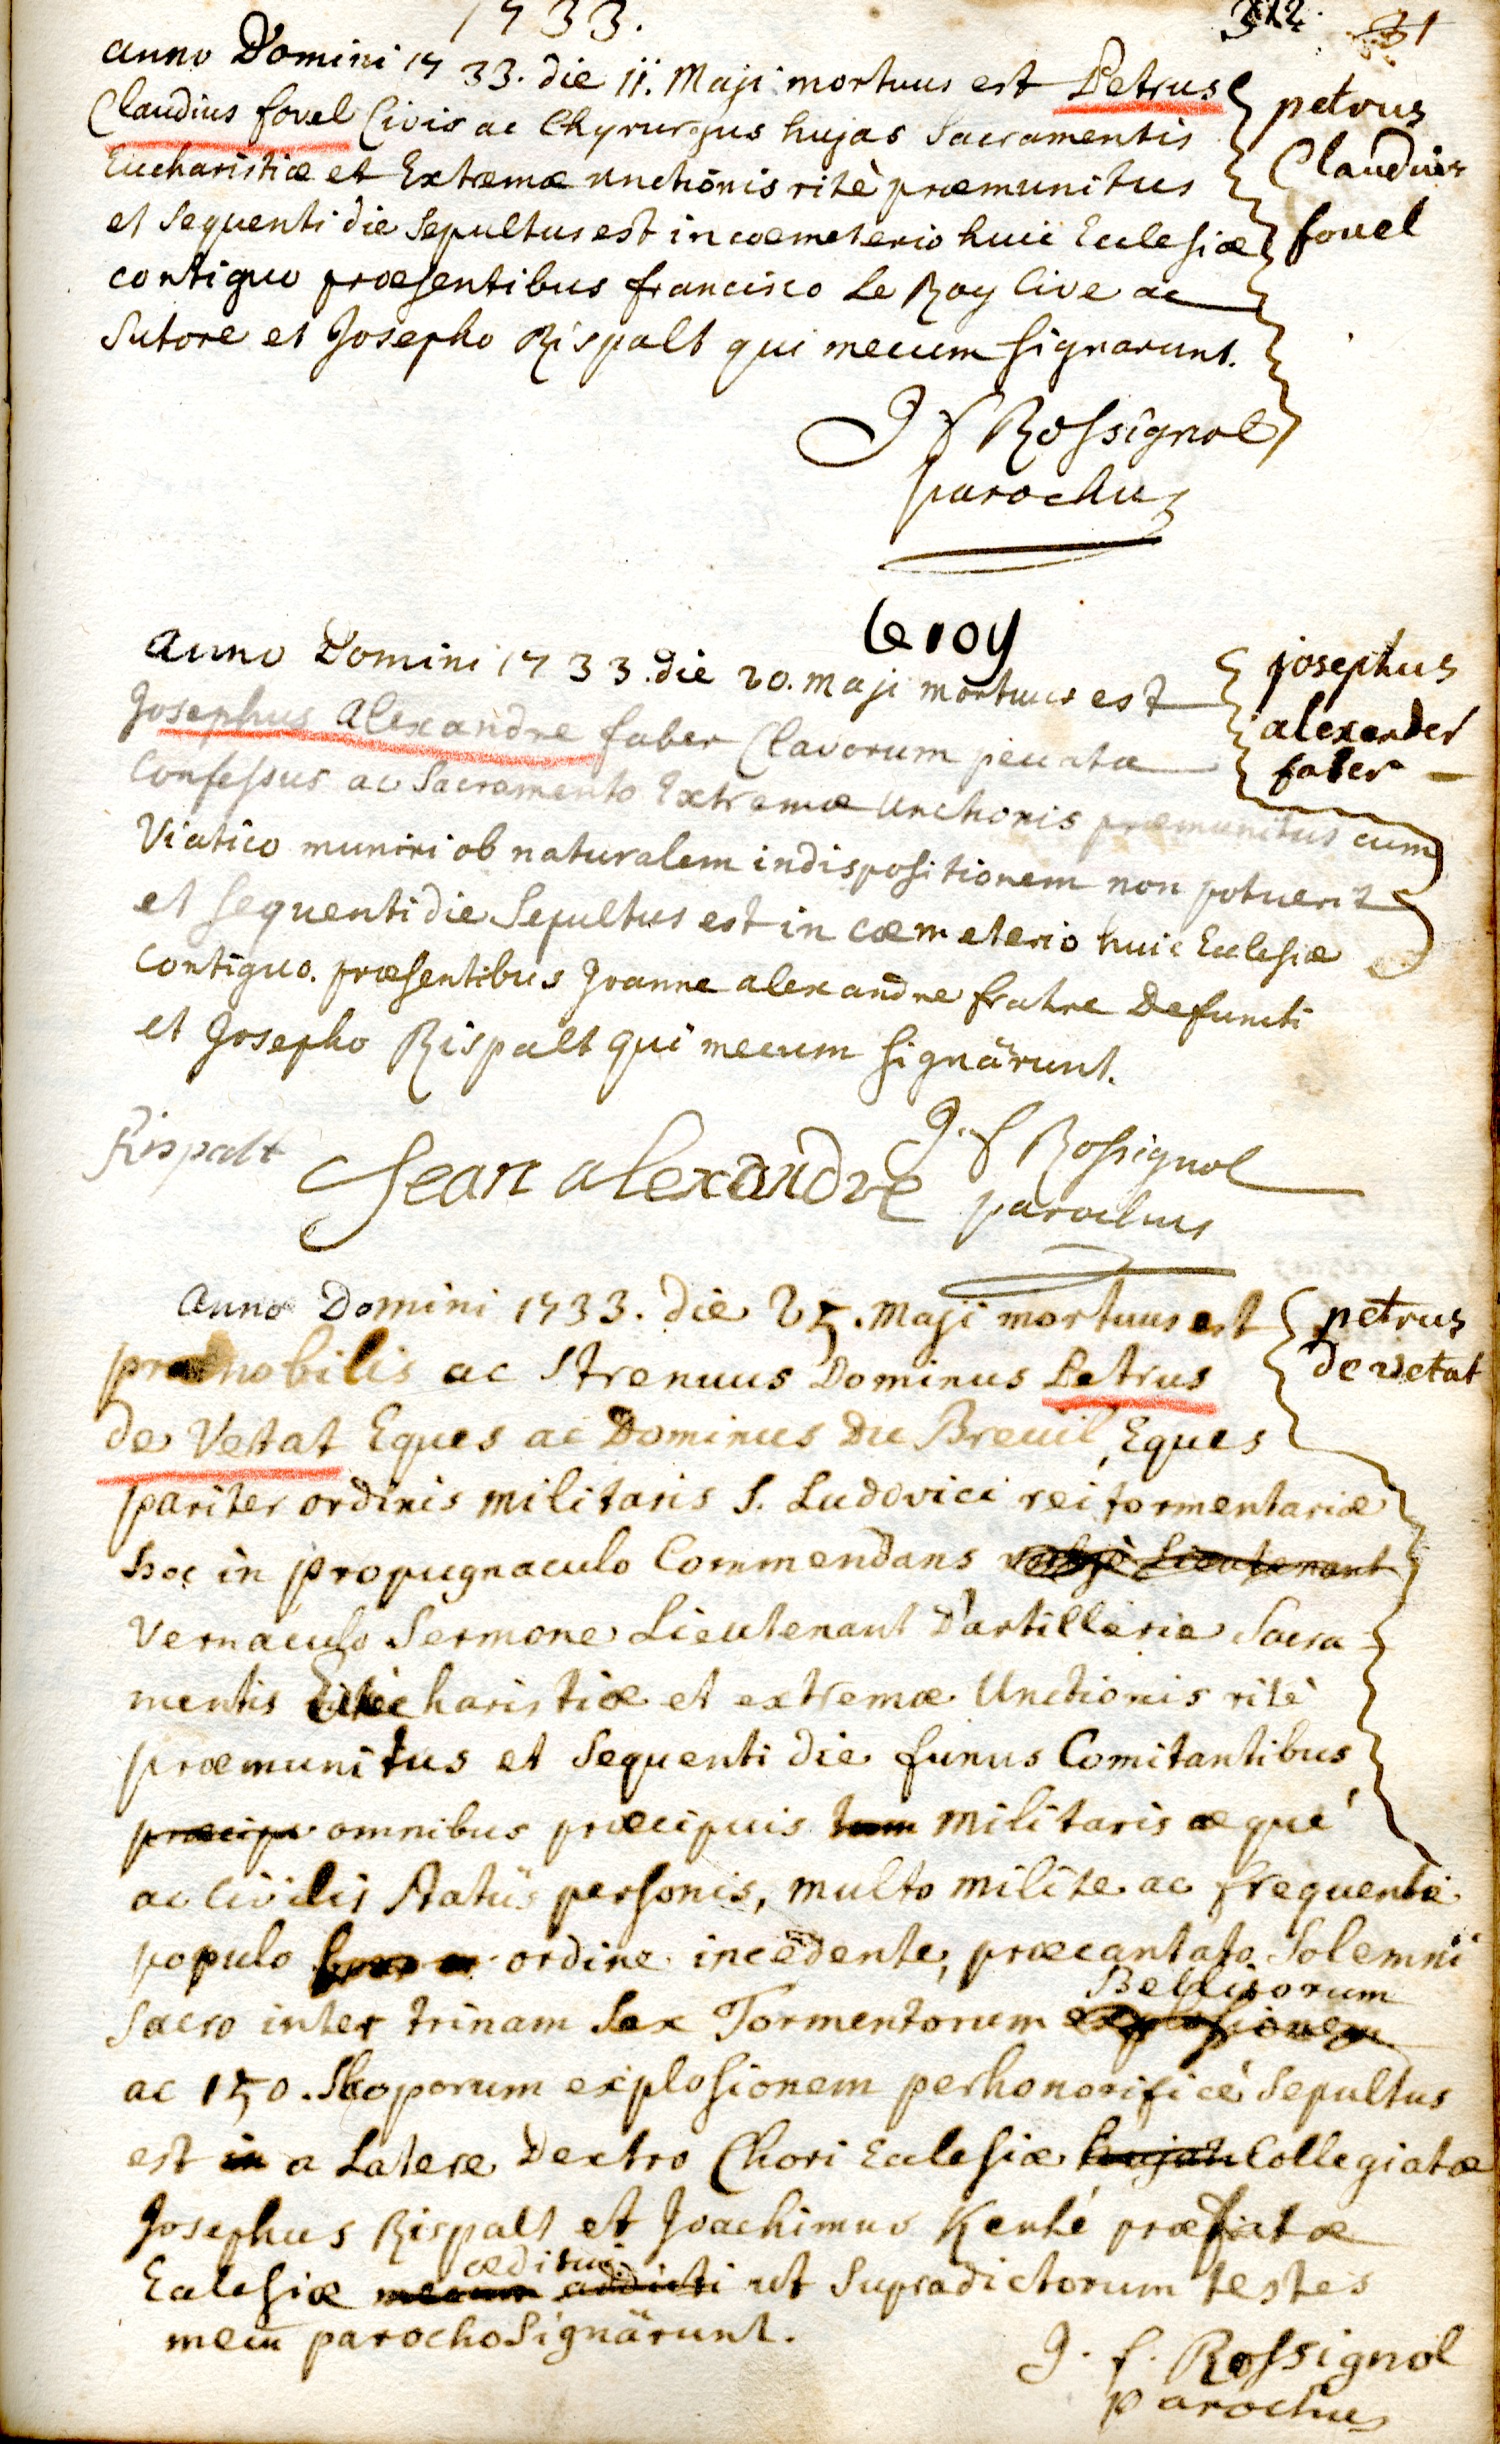 1733.
312. 31
anno Domini 1733. die 11. Maji mortuus est Petrus
Claudius fovel Civis ac Chyrurgus hujas Sacramentis
Eucharistiæ et Extremæ unctionis ritè præmunitus
et sequenti die sepultus est in coemeterio huic Ecclesiæ
contiguo præsentibus francisco Le Roy Cive ac
Sutore et Josepho Rispalt qui mecum signarunt.
petrus
Claudius
fovel
J f Rossignol
parochus
leroy
anno Domini 1733. die 20. maji mortuus est
Josephus Alexandre faber Clavorum peccata
Confessus ac Sacramento Extremæ Unctionis præmunitus cum
Viatico muniri ob naturalem indispositionem non potuerit
et sequenti die Sepultus est in Cœmeterio huic Ecclesiæ
Contiguo. præsentibus Joanne alexandre fratre Defuncti
et Josepho Rispalt qui mecum signärunt.
josephus
alexander
faber
Rispalt
Jean alexandre
J. f Rossignol
parochus
Anno Domini 1733. die 25. Maji mortuus est
prænobilis ac Strenuus Dominus Petrus
de Vettat Eques ac Dominus Du Breuil, Eques
pariter ordinis militaris S. Ludovici rei tormentariæ
hoc in propugnaculo Commendans vulgò Lieutenant
Vernaculo Sermone Lieutenant D'artillerie Sacra-
mentis Eucharistiæ et extremæ Unctionis ritè
præmunitus et Sequenti die funus Comitantibus
præcipu omnibus præcipuis tam militaris æquè
ac Civilis Statüs personis, multo milite ac frequente
populo ordine incedente, præcantato Solemni
Sacro inter trinam Sex Tormentorum explosionem
Bellicorum
ac 150. Scoporum explosionem perhonorificè Sepultus
est in a Latere Dextro Chori Ecclesiæ hujatis Collegiatæ
Josephus Rispalt et Joachimus Kenté præfatæ
Ecclesiæ mecum addicti ut Supradictorum testes
æditui
mecū parocho Signärunt.
petrus
de vetat
J. f. Rossignol
parochus